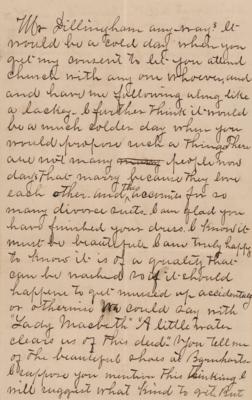 Mr Dillingham any way? It
would be a cold day when you
get my consent to let you attend
church with any one whoever, and
and have me following along like
a lackey. I further think it would
be a much colder day when you
would propose such a thing. There
are not many people now
days that marry because they love
each other and the accounts for so
many divorce suits. I am glad you
have finished your dress. I know it
must be beautiful. I am truly happy
to know it is of a quality that
can be washed so if it should
happen to get mussed up accidentally
or otherwise we could say with
"Lady Macbeth" "A little water
clears us of this deed." You tell me
of the beautiful shoes at
I suppose you mention this thinking I
will suggest what kind to get. But